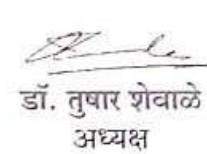 डॉ. तुषार शेवाळे
अध्यक्ष